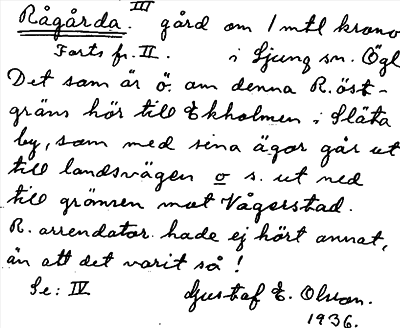 Rågårda. III gård om 1 mtl krono
Forts fr. II. i Ljung sn. Ögl
Det som är ö. om denna R. öst-
gräns hör till Ekholmen i Släta
by, som med sina ägor går ut
till landsvägen o s. ut ned
till gränsen mot Vågerstad.
R. arrendator hade ej hört annat,
än att det varit så!
Se: IV Gustaf E. Olson.
1936.